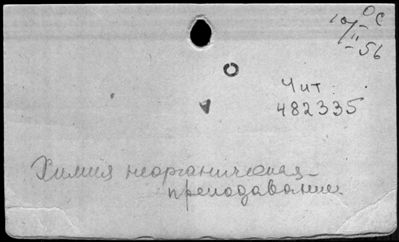 ОС
10/II-56
Чит
482335
Химия неорганическая -
преподавание.